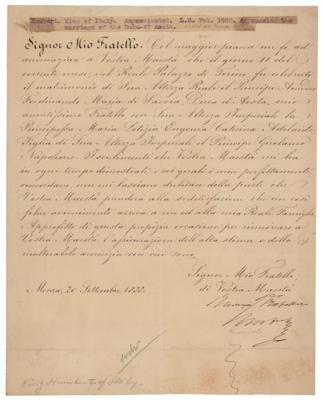 Humbert, King of Italy. Assassinated. L.S. Fol. 1888. Announcing the
marriage of the Duke of Aosta.
Signor Mio Fratello. Col maggior piacere mi fo ad
annunziare a Vostra Maestà che il giorno 11 del
corrente mese, nel Reale Palazzo di Torino, fu celebrato
il matrimonio di Sua Altezza Reale il Principe Amedeo
Ferdinando Maria di Savoia Duca di Aosta, mio
amatissimo Fratello con Sua Altezza Imperiale la
Principessa Maria Letizia Eugenia Caterina Adelaide
Figlia di Sua Altezza Imperiale il Principe Girolamo
Napoleone. I sentimenti che Vostra Maestà mi ha
in ogni tempo dimostrati, ai quali i miei perfettamente
concordano, non mi lasciano dubitare della parte che
Vostra Maestà prenderà alla soddisfazione che un così
felice avvenimento arreca a me ed alla mia Reale Famiglia.
Approfitto di questa propizia occasione per rinnovare a
Vostra Maestà l'assicurazione dell'alta stima e della
inalterabile amicizia con cui sono,
Signor Mio Fratello
di Vostra Maestà
Monza, 20 Settembre 1888.
King Humbert of Italy.